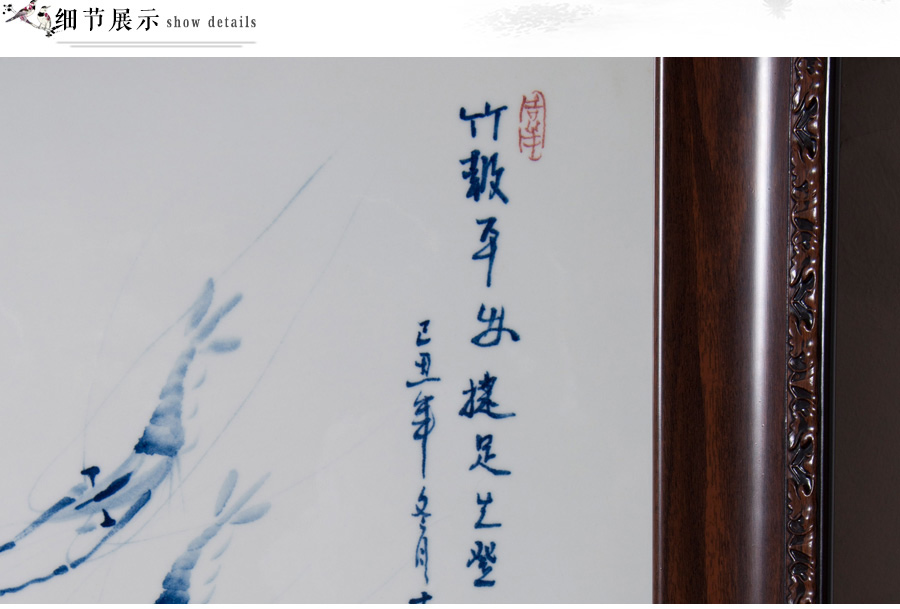 细节展示 show details
竹报平安 捷足先登
己丑年冬月